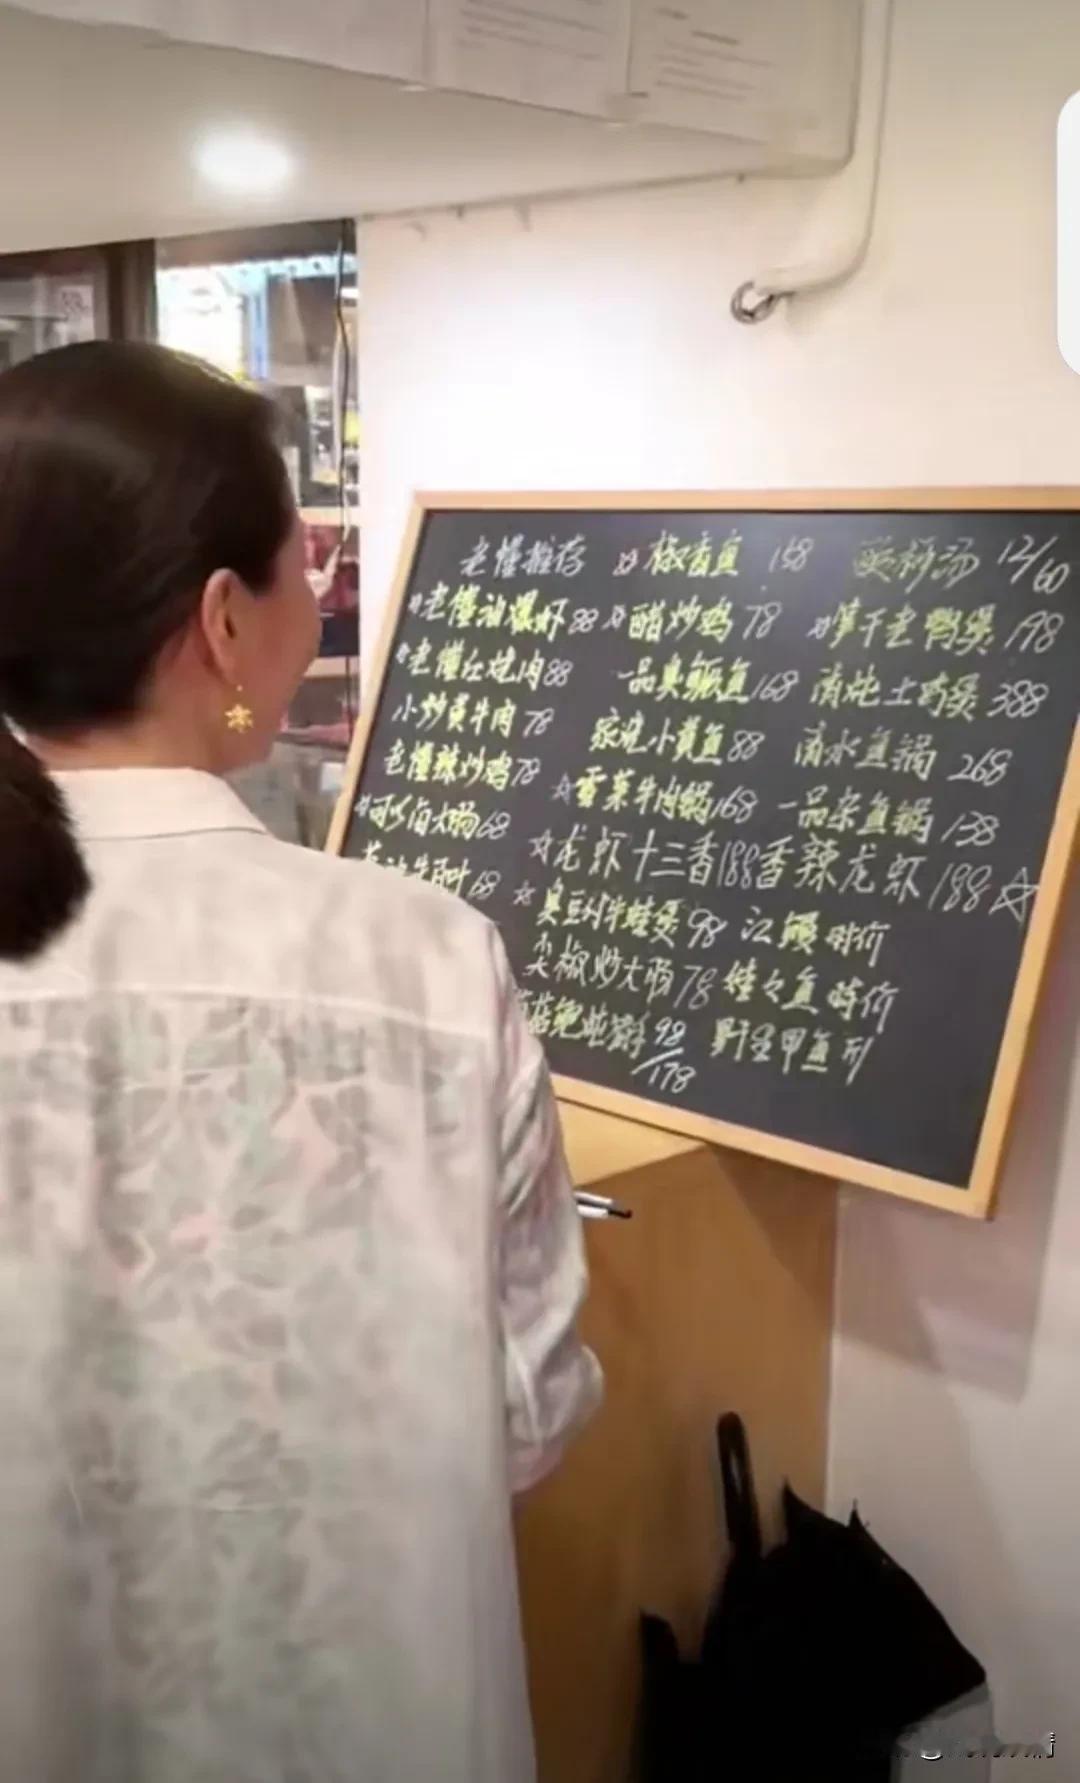 老懂推荐
老懂油爆虾 88
老懂红烧肉 88
小炒黄牛肉 78
老懂辣炒鸡 78
大肠 68
68
☆ 椒香鱼 158
☆ 醋炒鸡 78
一品臭鳜鱼 168
家烧小黄鱼 88
☆ 雪菜牛肉锅 168
☆ 龙虾十三香 188
☆ 臭豆腐牛蛙煲 98
尖椒炒大肠 78
98/178
汤 12/60
☆ 笋干老鸭煲 198
清炖土鸡煲 388
清水鱼锅 268
一品杂鱼锅 138
香辣龙虾 188 ☆
江鳗时价
娃々鱼時价
野生甲鱼